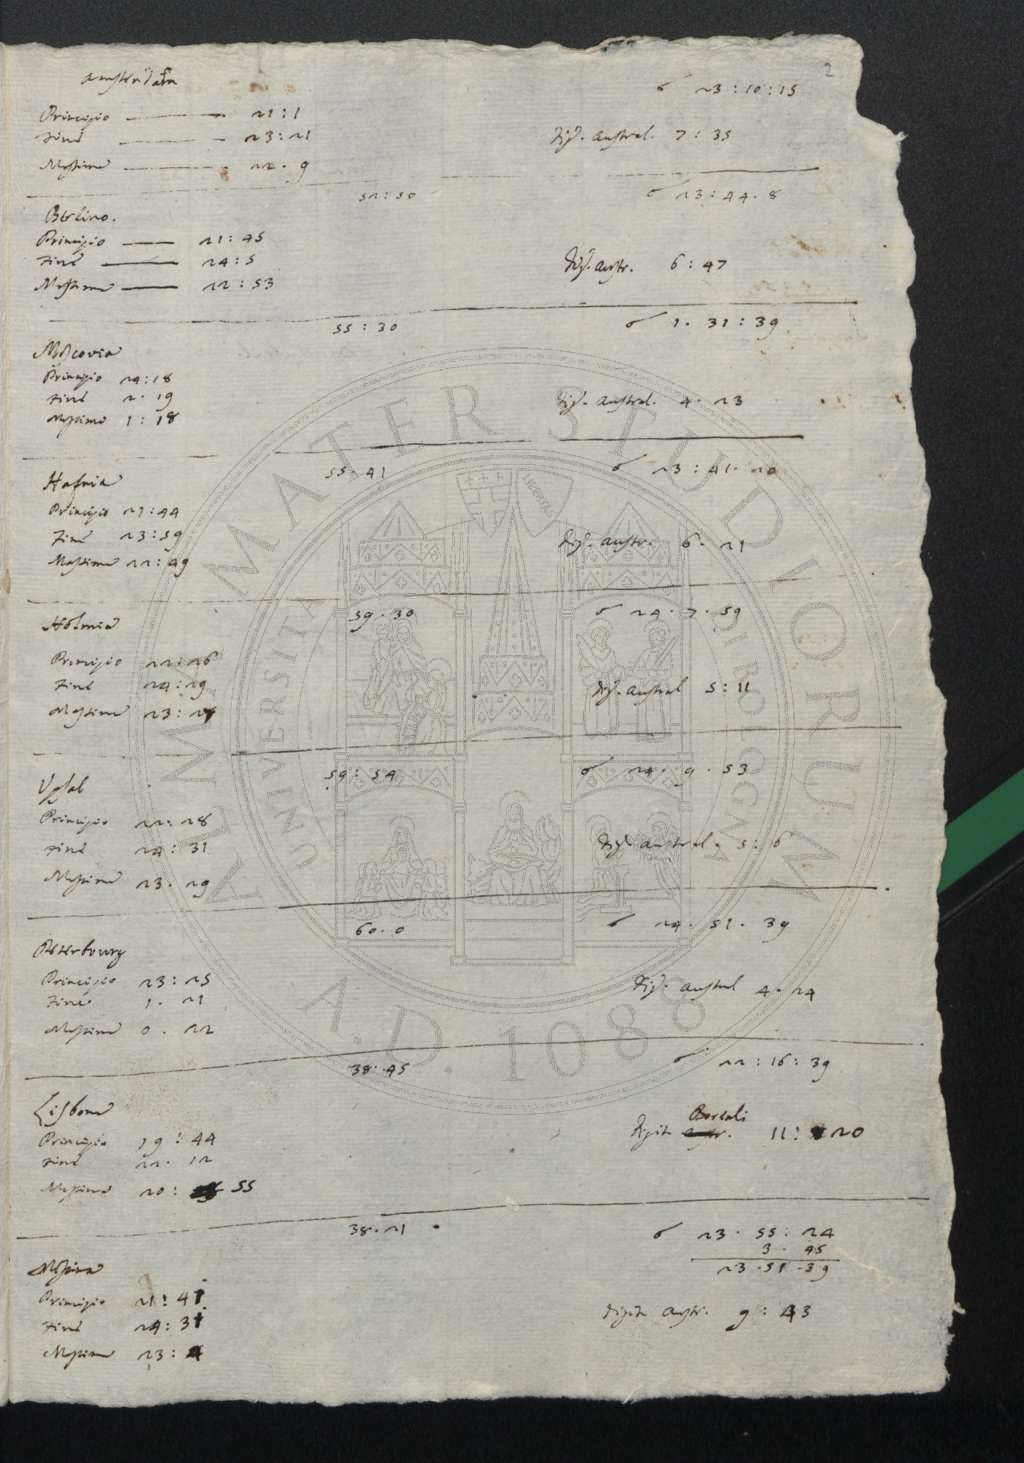 2
Amsterdam
☌ 23 : 10 : 15
Principio 21 : 1
Fine 23 : 21
Digi. austral. 7 : 35
Massima 22 . 9
52 : 30
☌ 23 : 44 . 8
Berlino.
Principio 21 : 45
Fine 24 : 5
Digi. austr. 6 : 47
Massima 22 : 53
55 : 30
☌ 1 . 31 : 39
Moscovia
Principio 24 : 18
Fine 2 . 19
Digi. austral. 4 . 23
Massima 1 : 18
55 . 41
☌ 23 : 41 . 20
Hafnia
Principio 21 : 44
Fine 23 : 59
Digi. austr. 6 . 21
Massima 22 : 49
59 . 30
☌ 24 . 7 . 59
Holmia
Principio 22 : 26
Fine 24 : 29
Digi. austral 5 : 11
Massima 23 : 27
59 : 54
☌ 24 . 9 . 53
Upsal
Principio 22 : 28
Fine 24 : 31
Digi. austral. 5 : 6
Massima 23 . 29
60 . 0
☌ 24 . 51 . 39
Peterbourg
Principio 23 : 25
Fine 1 . 21
Digi. austral 4 . 24
Massima 0 . 22
38 : 45
☌ 22 : 16 : 39
Lisbona
Boreali
Principio 19 : 44
Digit. austr. 11 : 20
Fine 22 . 12
Massima 20 : 55
38 . 21
☌ 23 . 55 : 24
3 . 45
23 . 51 . 39
Messina
Principio 21 : 41
Fine 24 : 31
Digit. austr. 9 : 43
Massima 23 : 4
ALMA MATER STUDIORUM
UNIVERSITÀ DI BOLOGNA
LIBERTAS
A.D. 1088